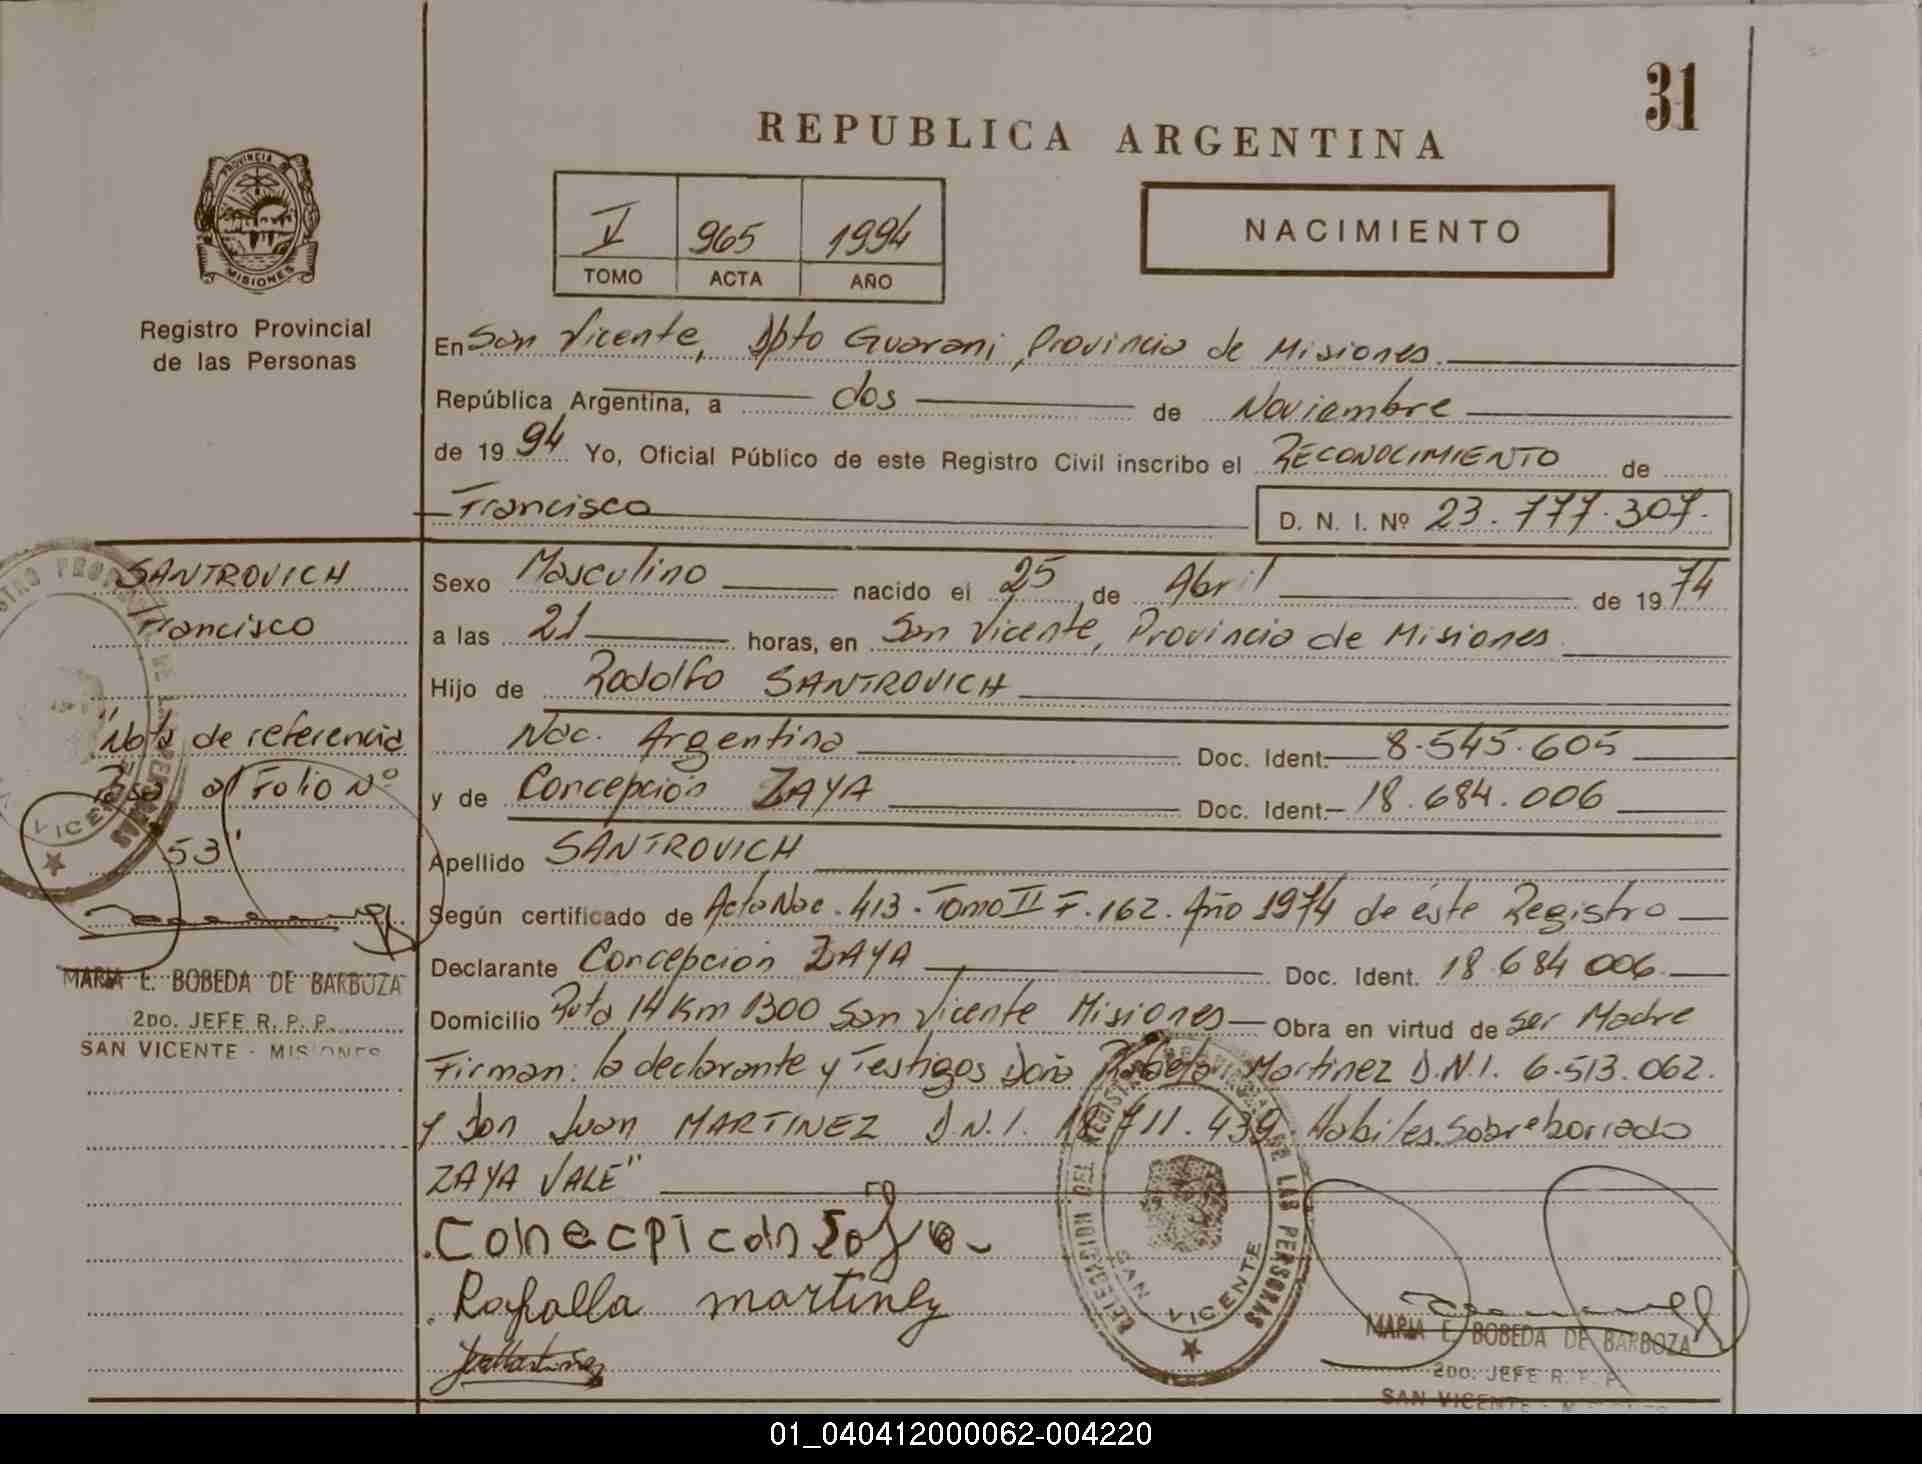 31
REPUBLICA ARGENTINA
PROVINCIA
MISIONES
Registro Provincial
de las Personas
V 965 1994
TOMO ACTA AÑO
NACIMIENTO
En San Vicente, Dpto Guarani, Provincia de Misiones
República Argentina, a dos de Noviembre
de 1994 Yo, Oficial Público de este Registro Civil inscribo el RECONOCIMIENTO de
Francisco D. N. I. Nº 23.777.307.
SANTROVICH
Francisco
"Nota de referencia
Pasa al Folio Nº
53"
MARIA E. BOBEDA DE BARBOZA
2DO. JEFE R. P. P.
SAN VICENTE - MISIONES
Sexo Masculino nacido el 25 de Abril de 1974
a las 21 horas, en San Vicente, Provincia de Misiones
Hijo de Rodolfo SANTROVICH
Nac. Argentina Doc. Ident. 8.545.605
y de Concepción ZAYA Doc. Ident. 18.684.006
Apellido SANTROVICH
Según certificado de Acta Nac. 413. Tomo II F. 162. Año 1974 de éste Registro
Declarante Concepción ZAYA Doc. Ident. 18.684.006.
Domicilio Ruta 14 Km 1300 San Vicente Misiones Obra en virtud de ser Madre
Firman: la declarante y Testigos Doña Martinez D.N.I. 6.513.062.
y Don Juan MARTINEZ D.N.I. 711.439. Habiles. Sobreborrado
ZAYA VALE"
Rafaella martinez
DELEGACION DEL REGISTRO DE LAS PERSONAS
SAN VICENTE
MARIA E. BOBEDA DE BARBOZA
2DO. JEFE R. P. P.
SAN VICENTE -
01_040412000062-004220